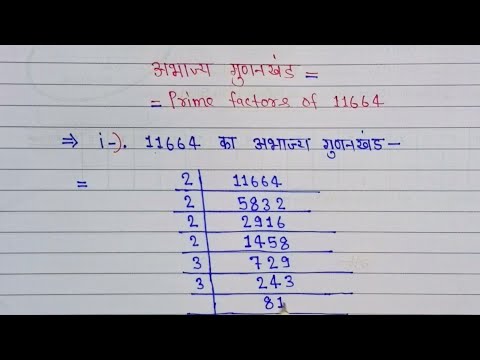 अभाज्य गुणनखंड =
= Prime factors of 11664
⇒ i-). 11664 का अभाज्य गुणनखंड-
=
2 | 11664
2 | 5832
2 | 2916
2 | 1458
3 | 729
3 | 243
81